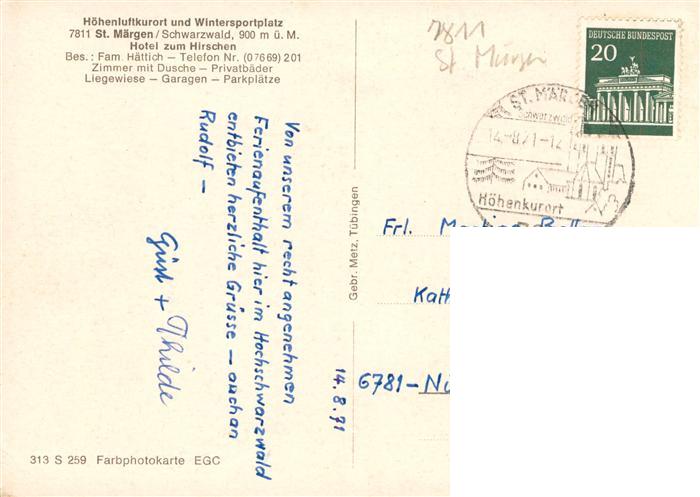 Höhenluftkurort und Wintersportplatz
7811 St. Märgen / Schwarzwald, 900 m ü. M.
Hotel zum Hirschen
Bes.: Fam. Hättich – Telefon Nr. (07669) 201
Zimmer mit Dusche – Privatbäder
Liegewiese – Garagen – Parkplätze
7811
St. Märgen
DEUTSCHE BUNDESPOST
20
ST. MÄRGEN
Schwarzwald
14.-8.71-12
Höhenkurort
Von unserem recht angenehmen
Ferienaufenthalt hier im Hochschwarzwald
entbieten herzliche Grüsse – auch an
Rudolf –
+ Thilde
14.8.71
Gebr. Metz, Tübingen
Frl.
6781-
313 S 259 Farbphotokarte EGC